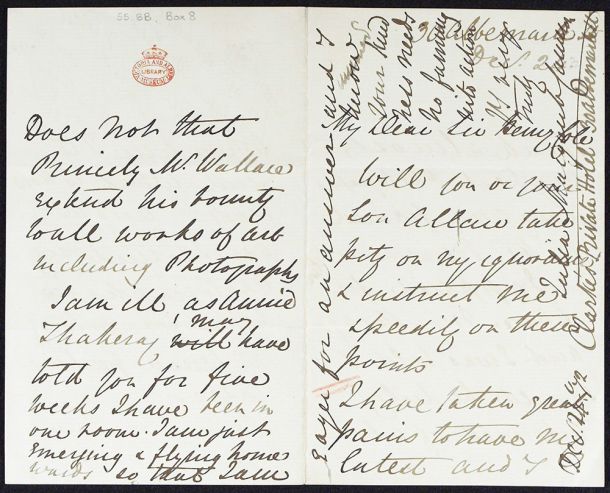 SS. BB. Box 8
VICTORIA AND ALBERT MUSEUM
LIBRARY
Does not that
Princely Mr. Wallace
extend his bounty
to all works of art
including Photographs
I am ill as Annie
may
Thakeray will have
told you for five
weeks I have been in
one room. I am just
emerging & flying home
wards so that I am
Albemarle St
Dec. 2
My Dear Sir Henry Cole
Will you or your
Son Allan take
pity on my ignorance
& instruct me
speedily on these
points
I have taken great
pains to have my
latest and I
Eager for an answer and I
know
your kind
ness needs
no fanning
into action
Yrs very
truly
Julia Margaret Cameron
Clarkes Private Hotel Albemarle St
Dec 72